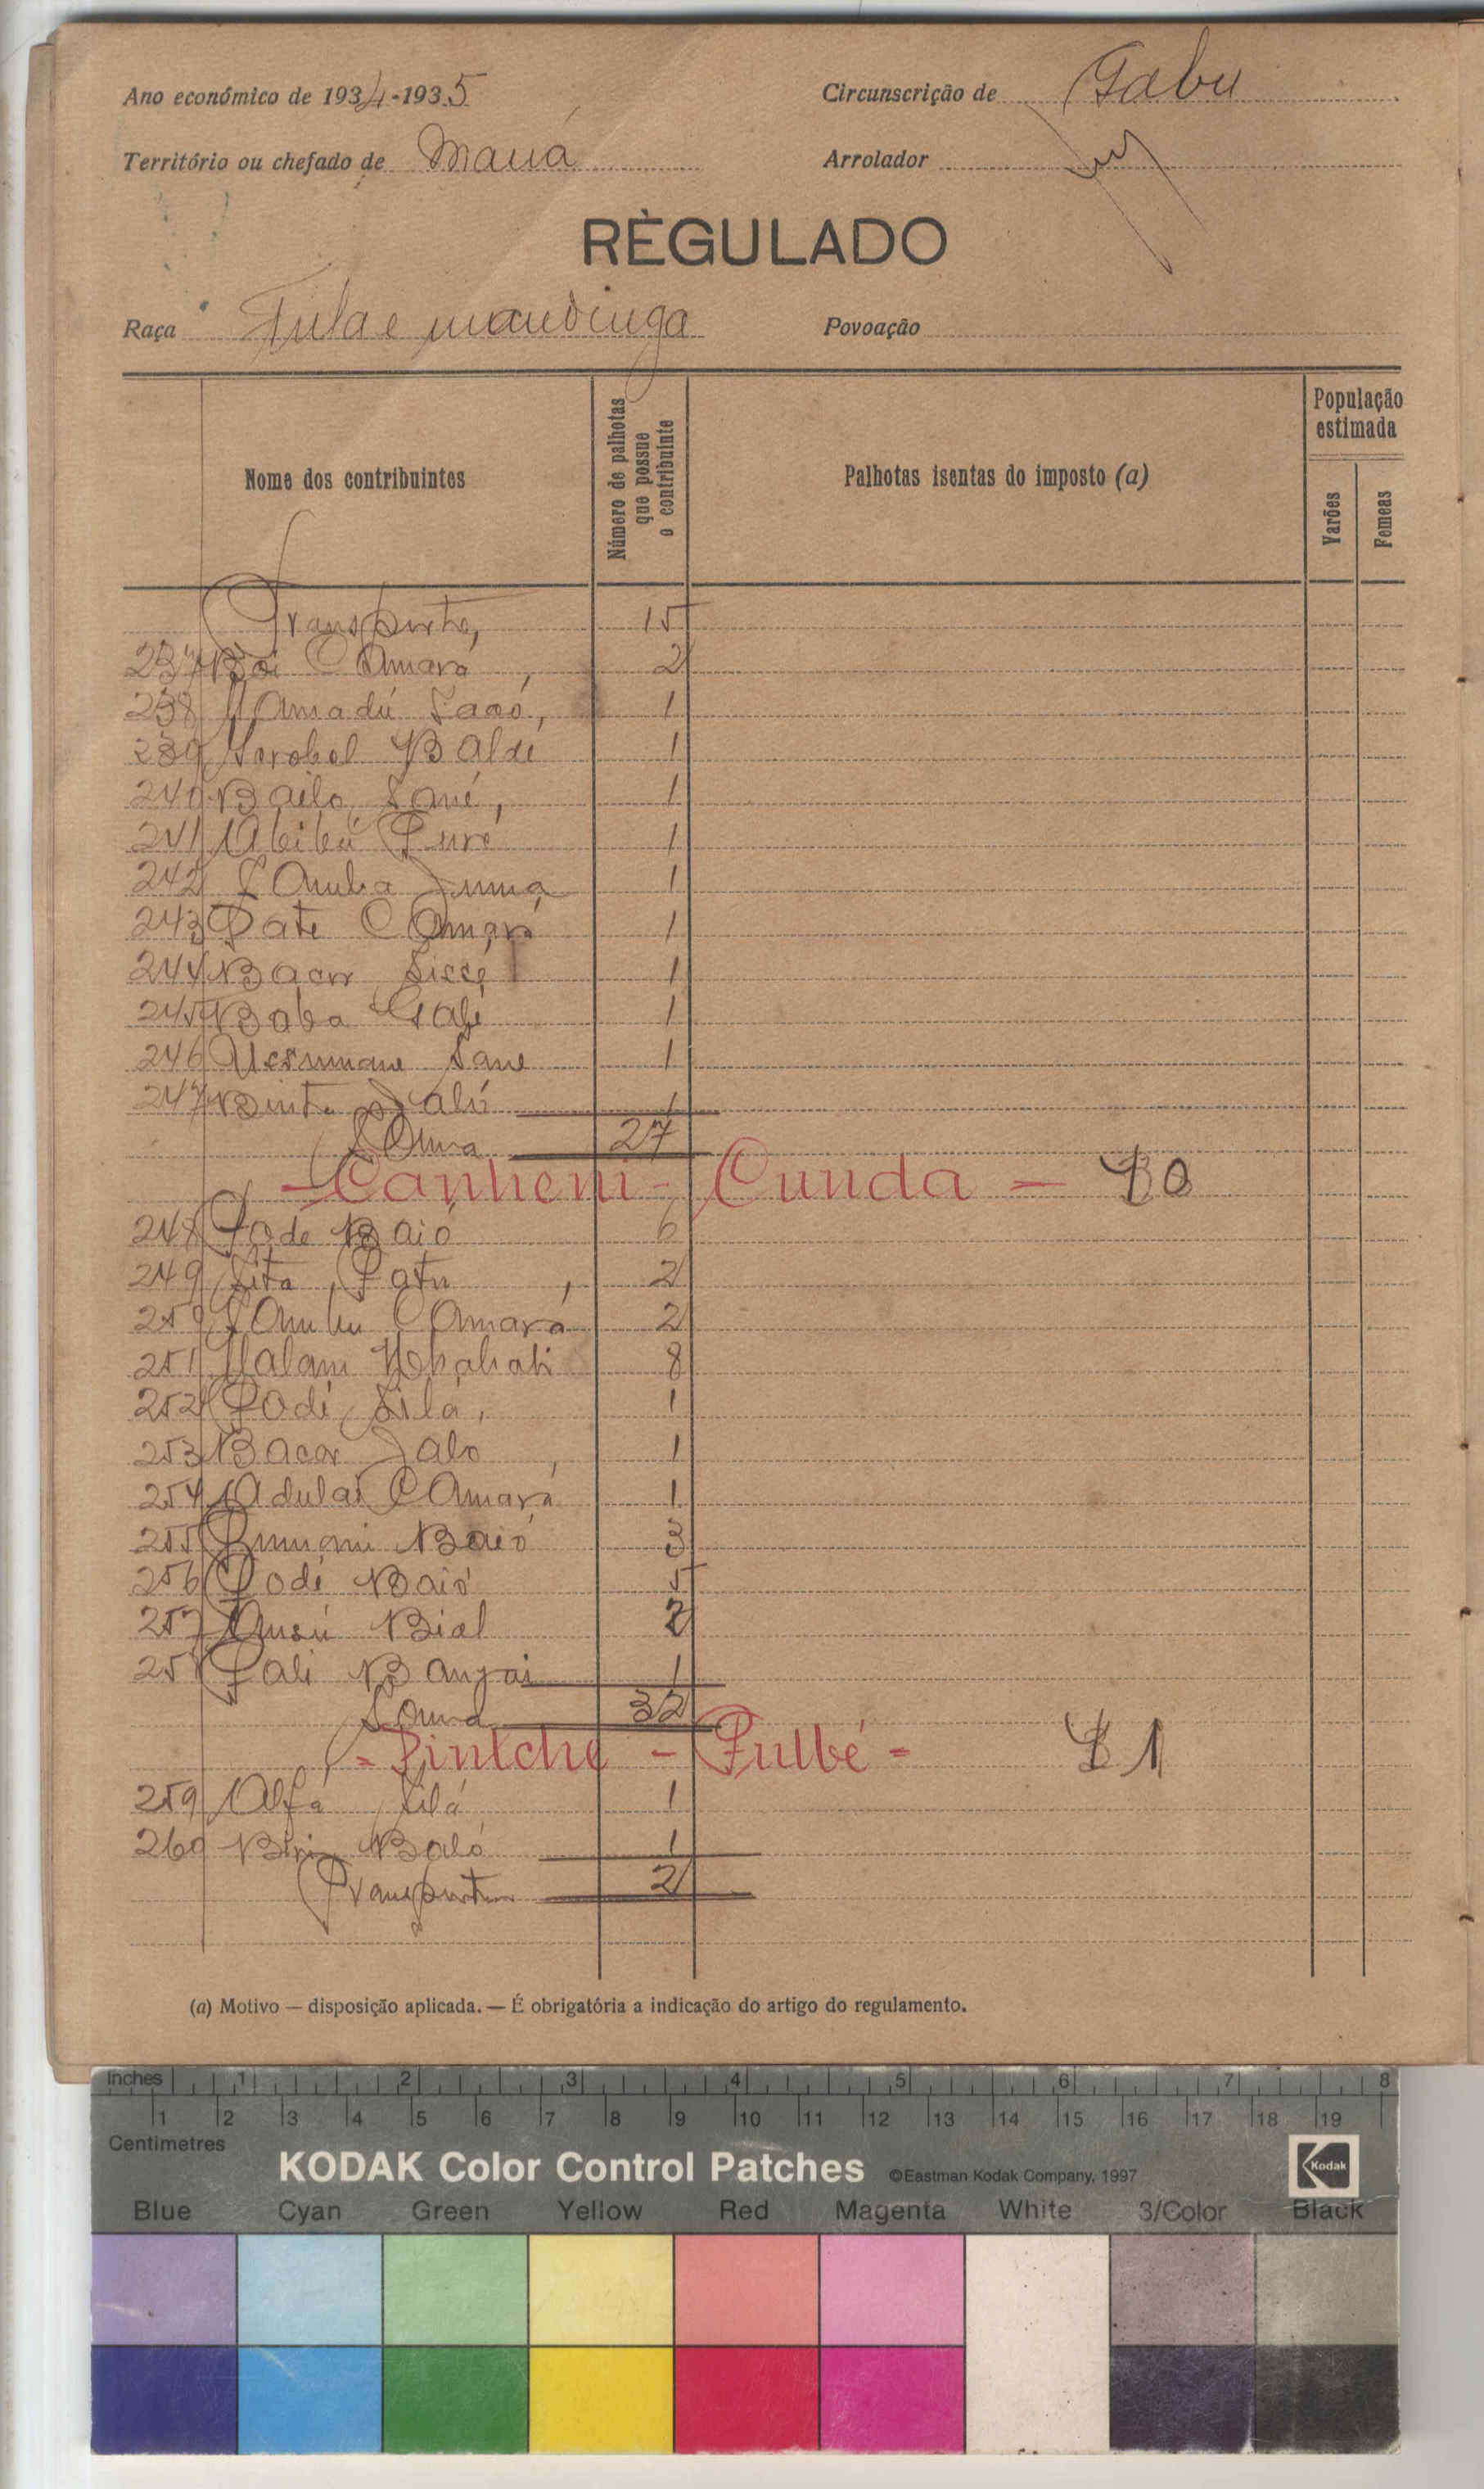 Ano económico de 1934-1935
Circunscrição de Gabu
Território ou chefado de Maná
Arrolador
RÈGULADO
Raça Fula e mandinga
Povoação
Nome dos contribuintes
Número de palhotas que possue o contribuinte
Palhotas isentas do imposto (a)
População estimada
Varões
Femeas
Transporte, 15
237 Boi Camará, 2
238 Mamadú 1
239 Baldé 1
240 Bailo Sané, 1
241 Abibú 1
242 Samba 1
243 Pate Camará 1
244 Bacar Sissé 1
245 Baba 1
246 Sane 1
247 Jaló 1
Soma 27
- Canheni - Cunda - 80
248 Baió 6
249 2
250 Camará 2
251 Malam 8
252 Fodé Silá, 1
253 Bacar Jalo, 1
254 Adulai Camará 1
255 Baió 3
256 Fodé Baió 5
257 Ansú Bial 2
258 1
Soma 32
- Pintche - Fulbé - 81
259 Alfa Silá 1
260 1
Transporte 2
(a) Motivo — disposição aplicada. — É obrigatória a indicação do artigo do regulamento.
Inches 1 2 3 4 5 6 7 8
1 2 3 4 5 6 7 8 9 10 11 12 13 14 15 16 17 18 19
Centimetres
KODAK Color Control Patches ©Eastman Kodak Company, 1997 Kodak
Blue Cyan Green Yellow Red Magenta White 3/Color Black